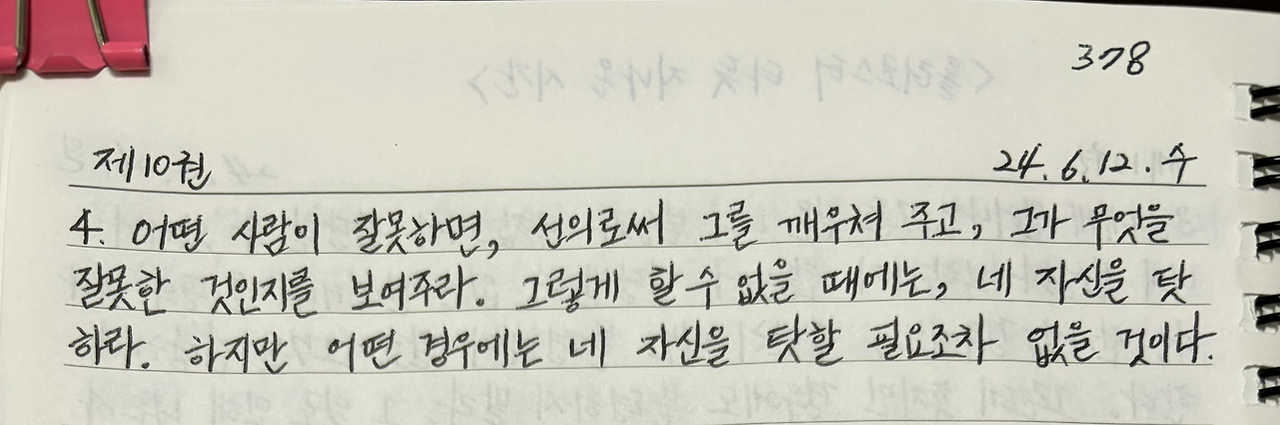 378
제10권 24.6.12.수
4. 어떤 사람이 잘못하면, 선의로써 그를 깨우쳐 주고, 그가 무엇을
잘못한 것인지를 보여주라. 그렇게 할 수 없을 때에는, 네 자신을 탓
하라. 하지만 어떤 경우에는 네 자신을 탓할 필요조차 없을 것이다.